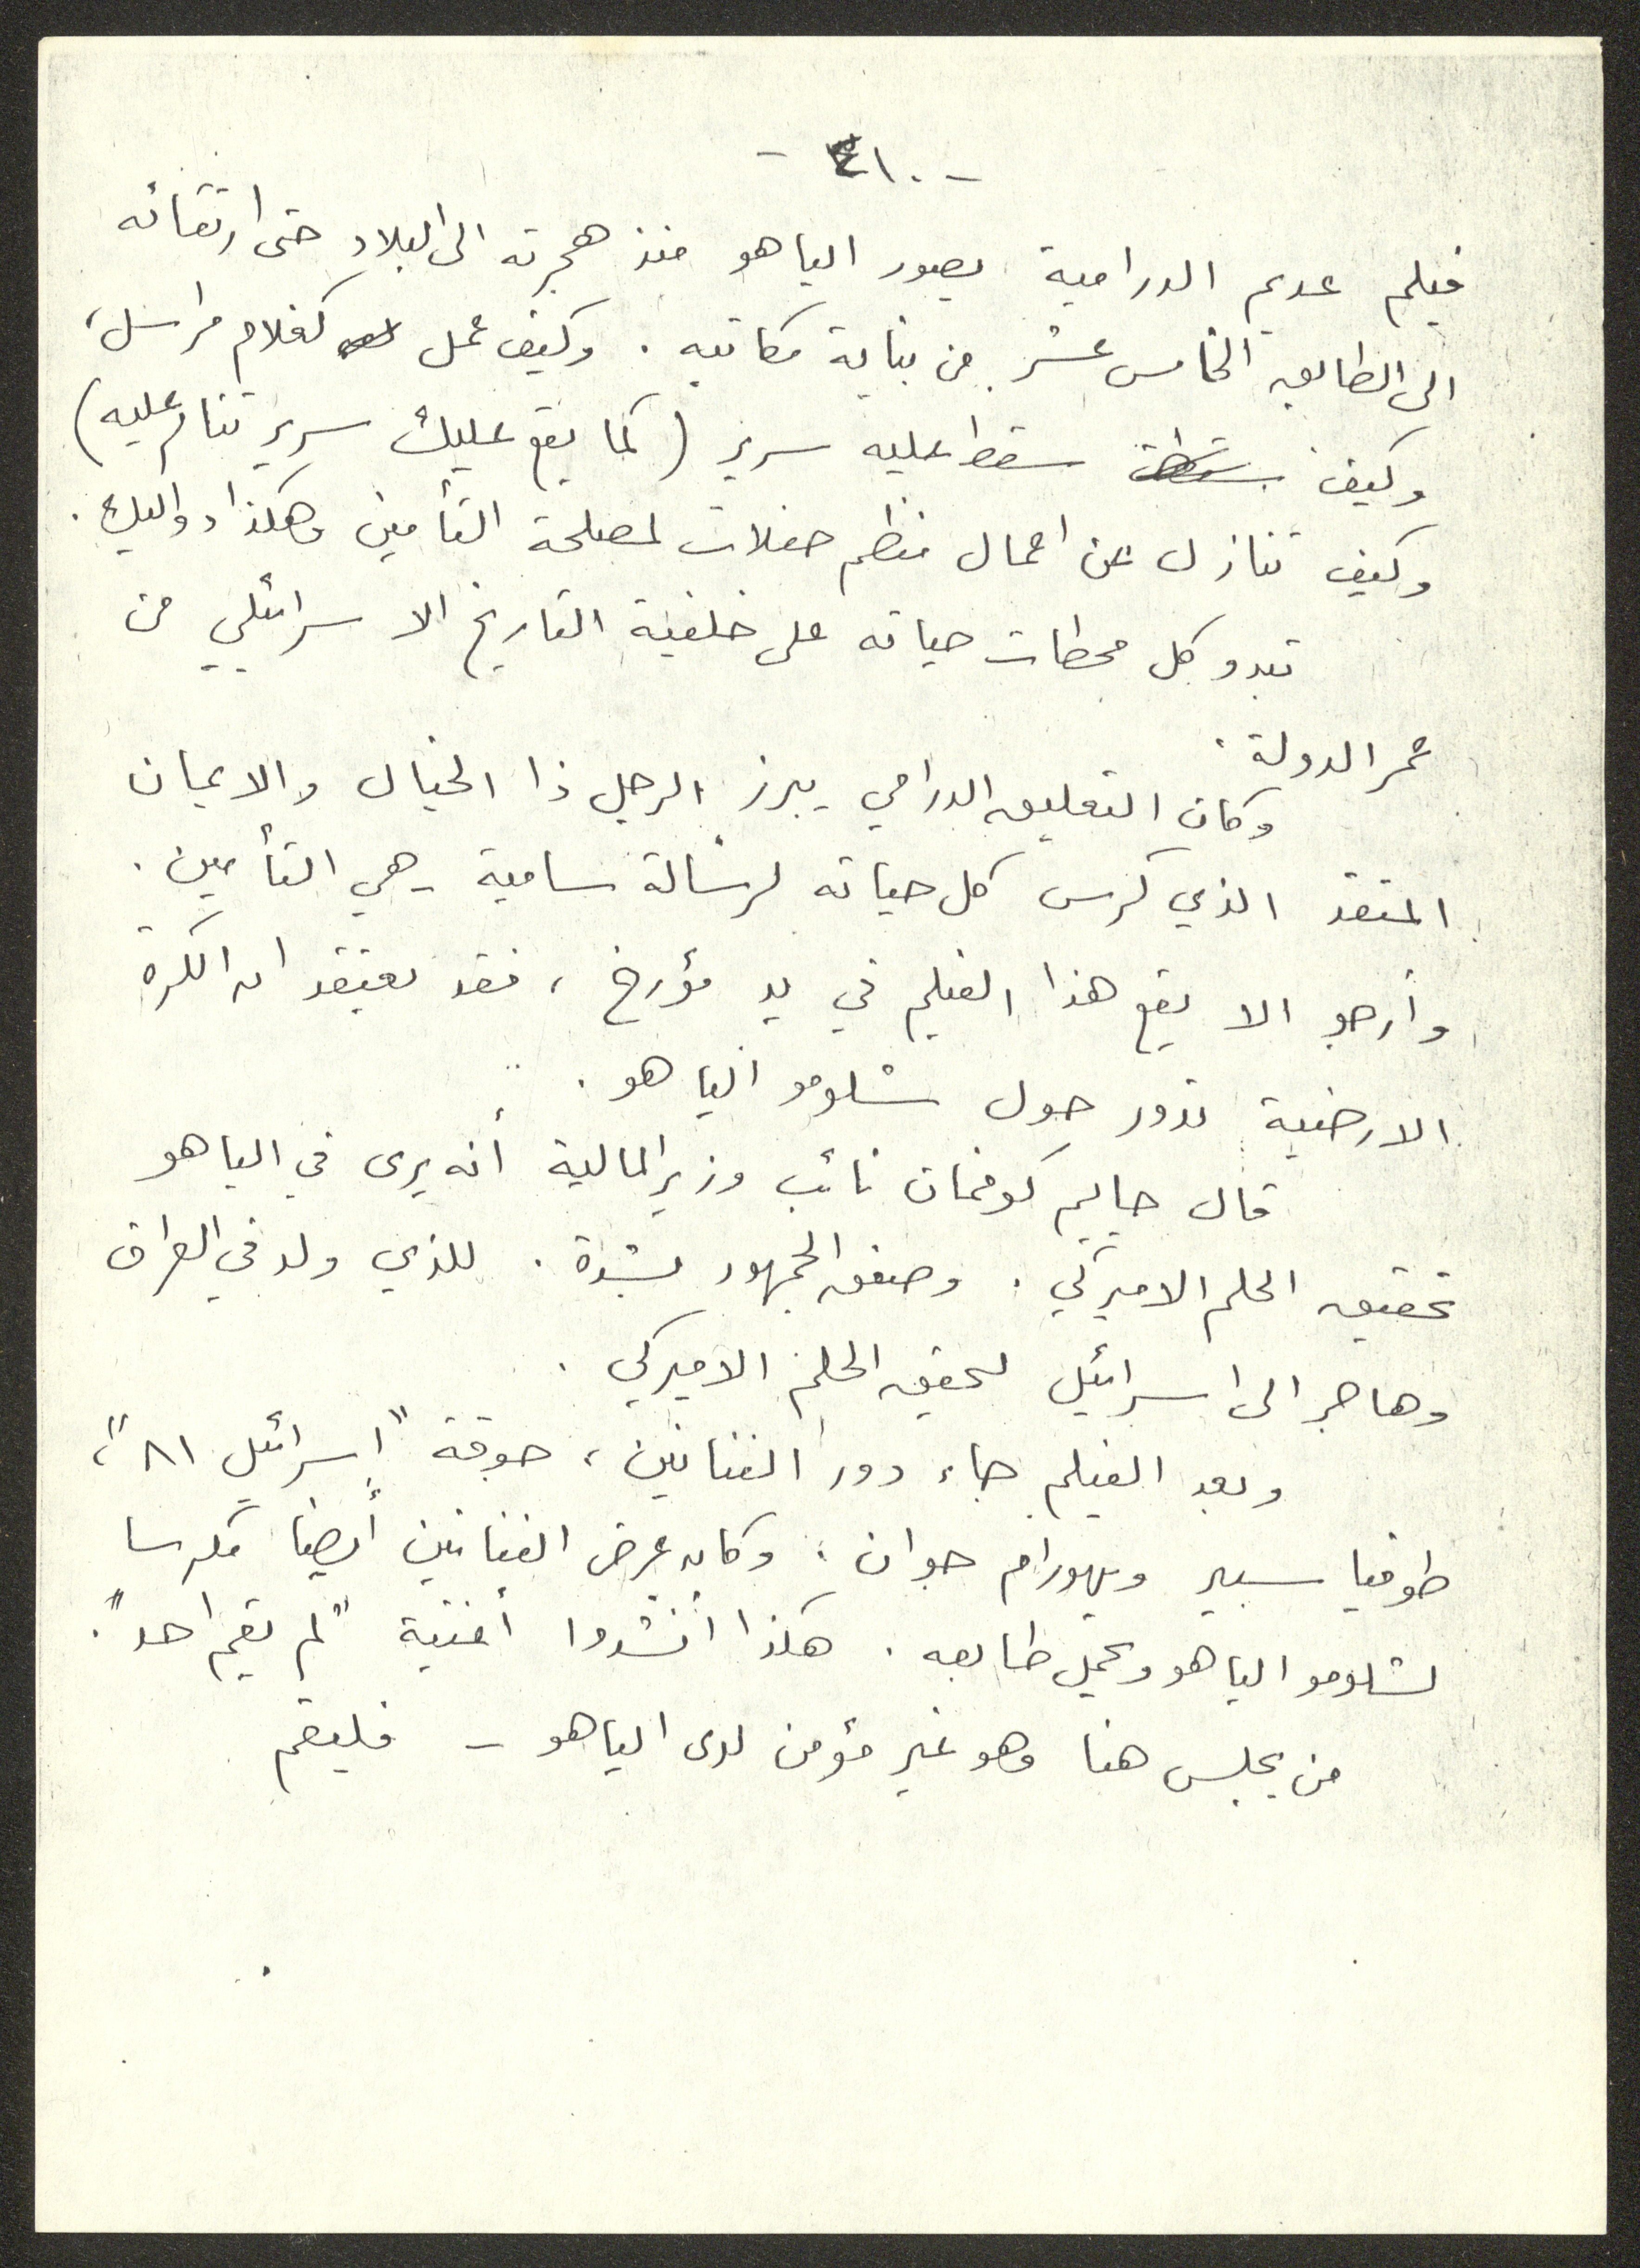 - ٤١٠ -
فيلم عديم الدرامية يصور الياهو منذ هجرته الى البلاد حتى ارتقائه
الى الطابق الخامس عشر من بناية مكاتبه . وكيف عمل كغلام مراسل،
وكيف سقط عليه سرير (كما يقع عليك سرير تنام عليه)
وكيف تنازل عن اعمال منظم حفلات لمصلحة التأمين وهكذا دواليك .
تبدو كل محطات حياته على خلفية التاريخ الاسرائيلي من
عمر الدولة .
وكان التعليق الدرامي يبرز الرجل ذا الخيال والايمان
المتقد الذي كرس كل حياته لرسالة سامية هي التأمين .
وأرجو الا يقع هذا الفيلم في يد مؤرخ ، فقد يعتقد ان الكرة
الارضية تدور حول شلومو الياهو .
قال حاييم كوفمان نائب وزير المالية أنه يرى في الياهو
تحقيق الحلم الاميركي . وصفق الجمهور بشدة . للذي ولد في العراق
وهاجر الى اسرائيل لتحقيق الحلم الاميركي .
وبعد الفيلم جاء دور الفنانين ، جوقة "إسرائيل ٨١"،
طوفيا سبير ويهورام جوان . وكان عرض الفنانين أيضا مكرسا
لشلومو الياهو ويحمل طابعه . هكذا أنشدوا أغنية "لم يقم احد".
من يجلس هنا وهو غير مؤمن لدى الياهو - فليقم